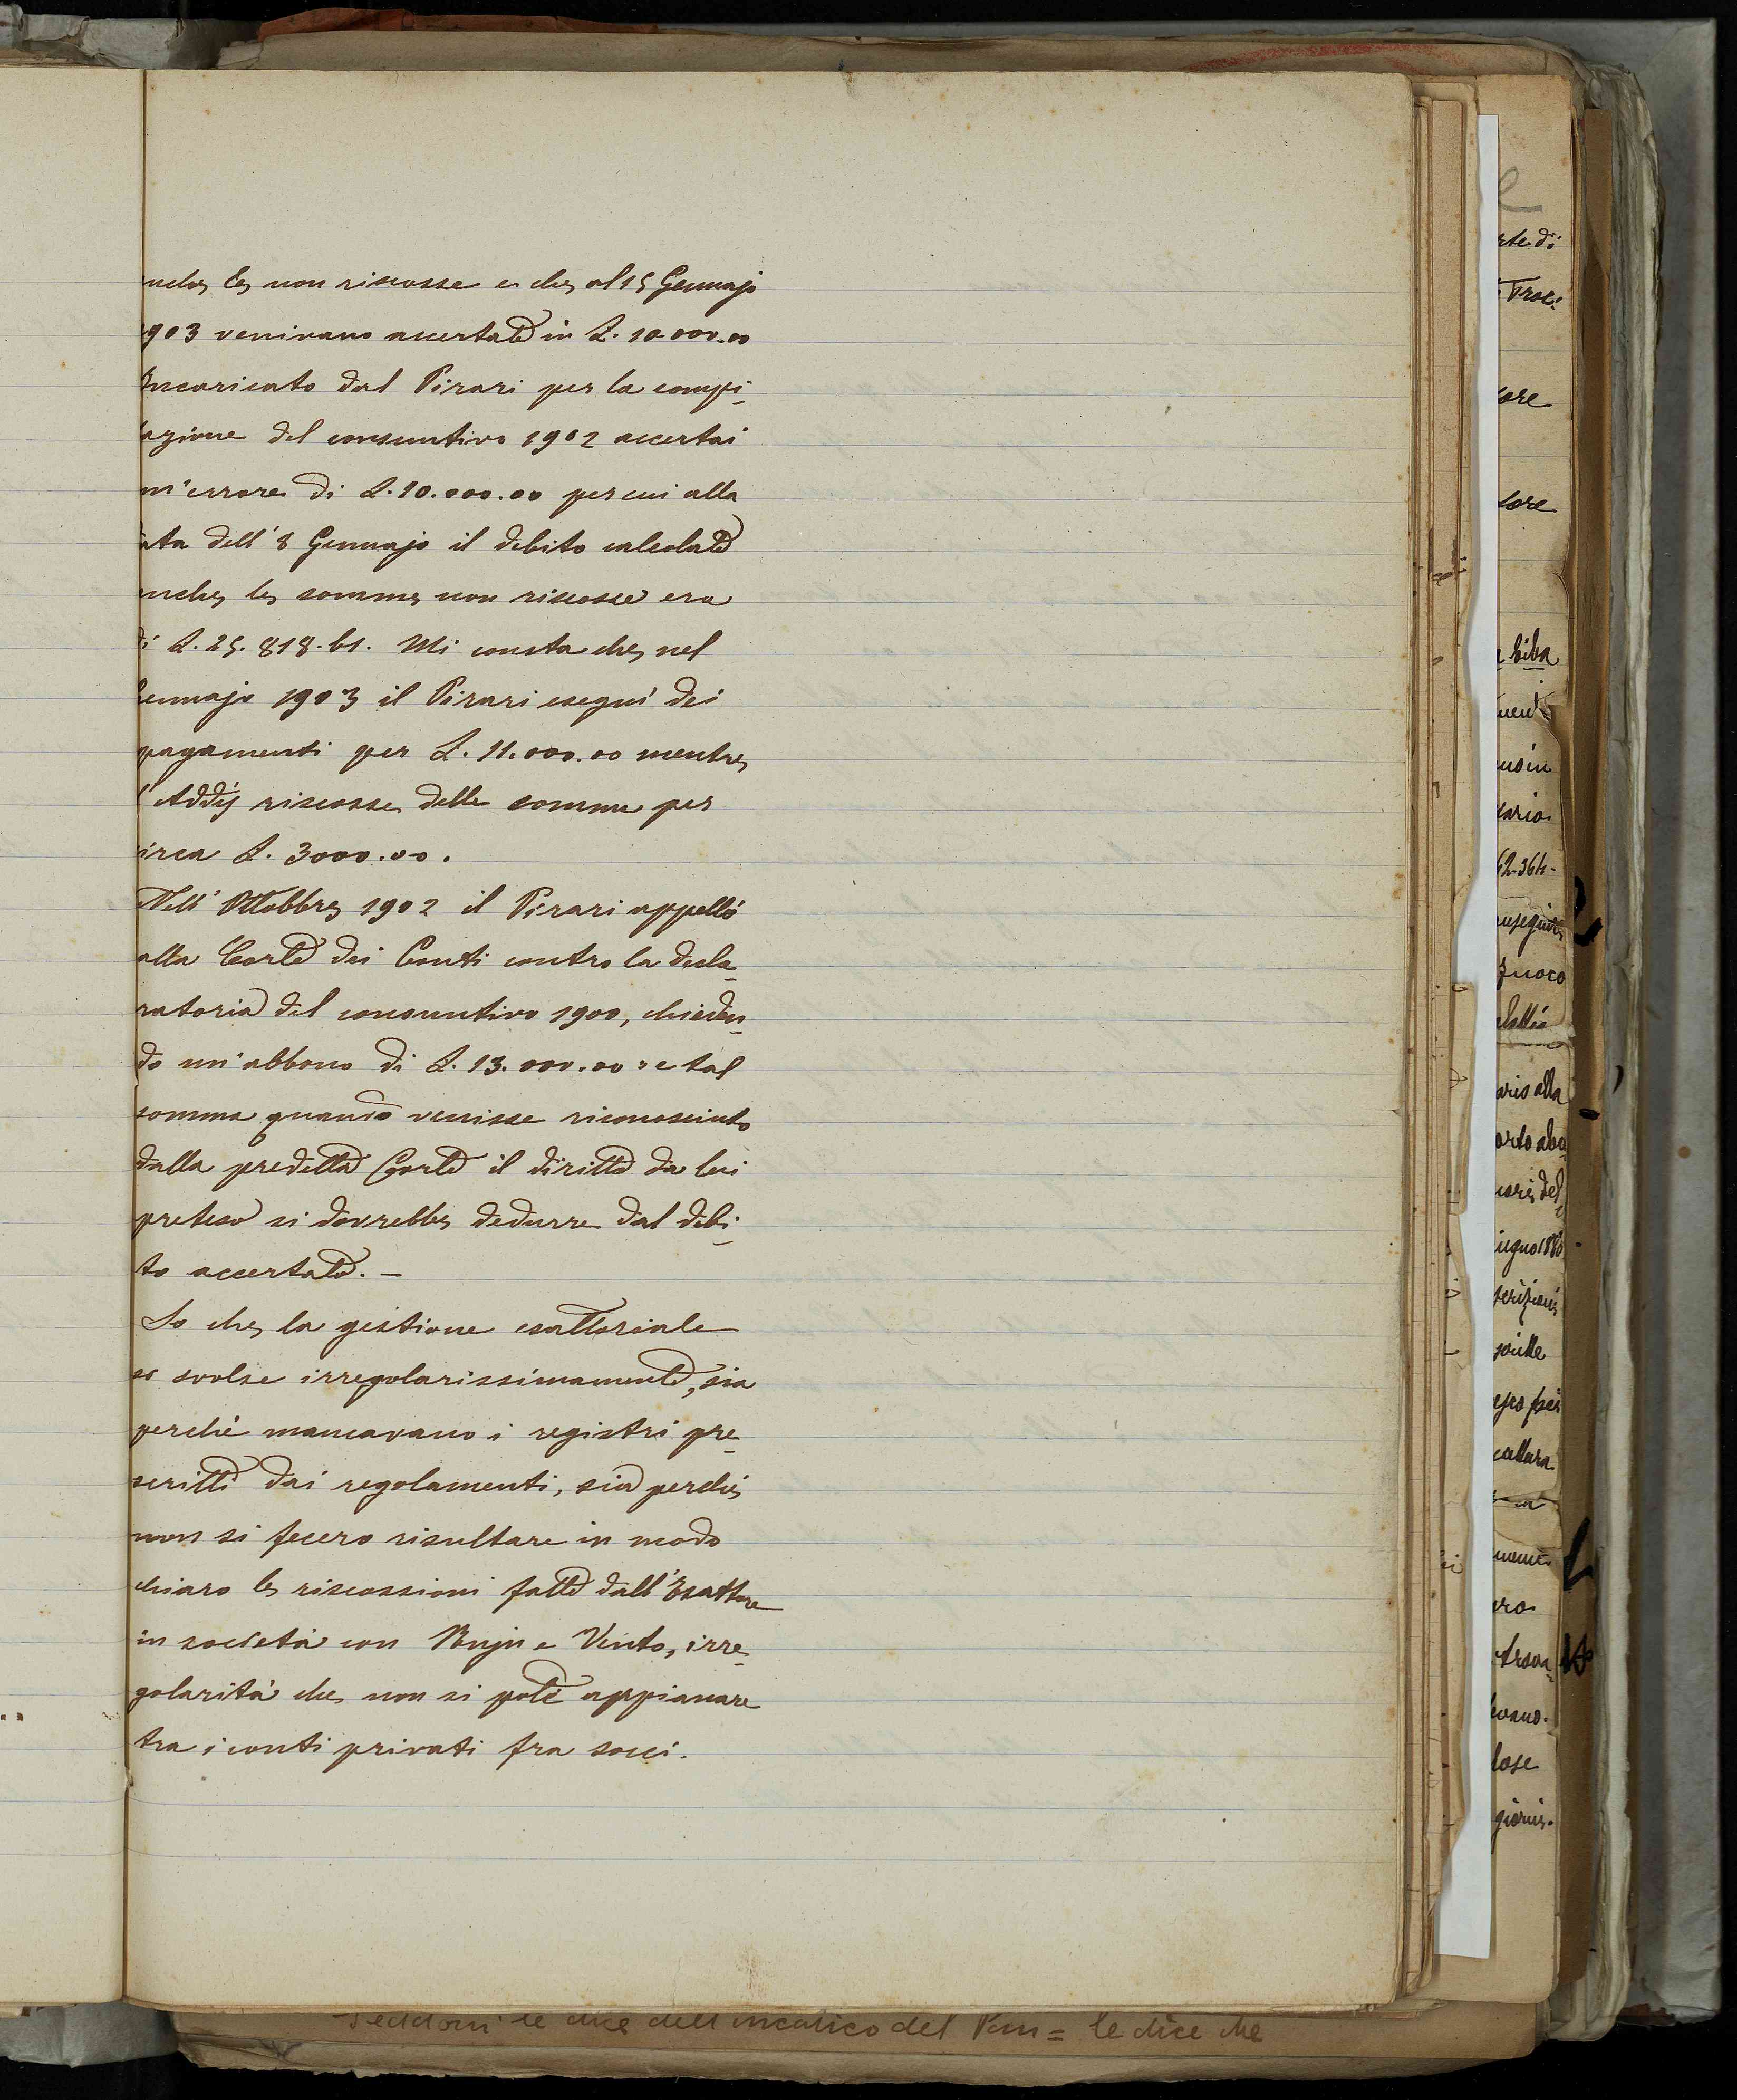 nche le non riscosse e che al 15 Gennajo
903 venivano accertate in L. 10.000.00
Incaricato dal Pirari per la compi-
lazione del consuntivo 1902 accertai
un'errore di L. 10.000.00 per cui alla
ata dell'8 Gennajo il debito calcolate
anche le somme non riscosse era
di L. 25.818.61. Mi consta che nel
Gennajo 1903 il Pirari eseguì dei
pagamenti per L. 11.000.00 mentre
l'Addis riscosse delle somme per
circa L. 3000.00.
Nell'Ottobbre 1902 il Pirari appellò
alla Corte dei Conti contro la decla-
ratoria del consuntivo 1900, chieden-
do un'abbono di L. 13.000.00 e tal
somma quando venisse riconosciuto
dalla predetta Corte il diritto da lui
preteso si dovrebbe dedurre dal debi-
to accertato. —
So che la gestione esattoriale
si svolse irregolarissimamente, sia
perchè mancavano i registri pre-
scritti dai regolamenti, sia perchè
non si fecero risultare in modo
chiaro le riscossioni fatte dall'Esattore
in società con e Vento, irre-
golarità che non si potè appianare
tra i conti privati fra socci.
rte di
tore
tore
Ciba
62-364-
fuoco
aris alla
cattura
ero
lose
giorni.
le dice dell'incarico del = le dice che